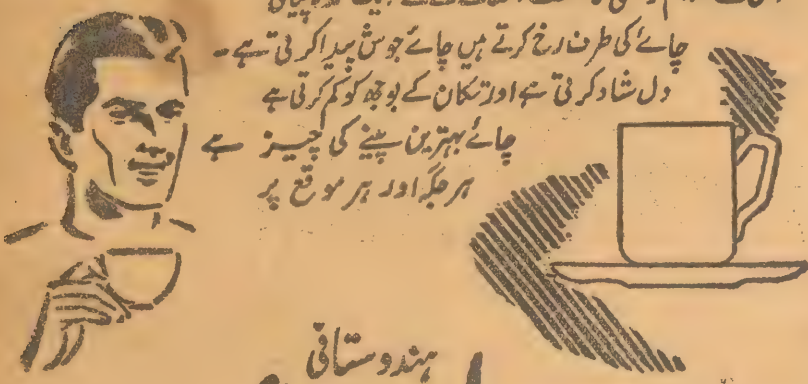 چائے کی طرف رخ کرتے ہیں چائے جوش پیدا کرتی ہے۔
دل شاد کرتی ہے اور تکان کے بوجھ کو کم کرتی ہے
چائے بہترین پینے کی چیز ہے
ہر جگہ اور ہر موقع پر
ہندوستانی